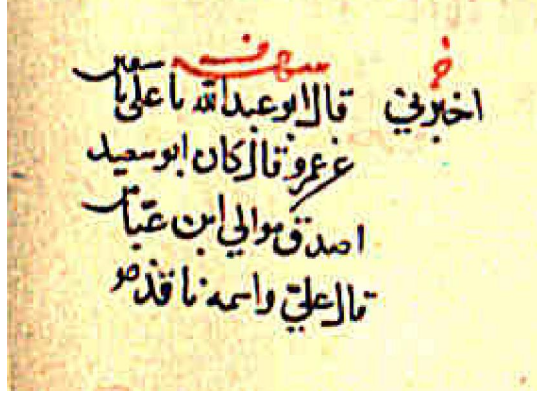 اخبرني قال ابو عبد الله نا علي نا سفين
عن عمرو قال كان ابو معبد
اصدق موالي ابن عباس
قال علي واسمه نافذ هو